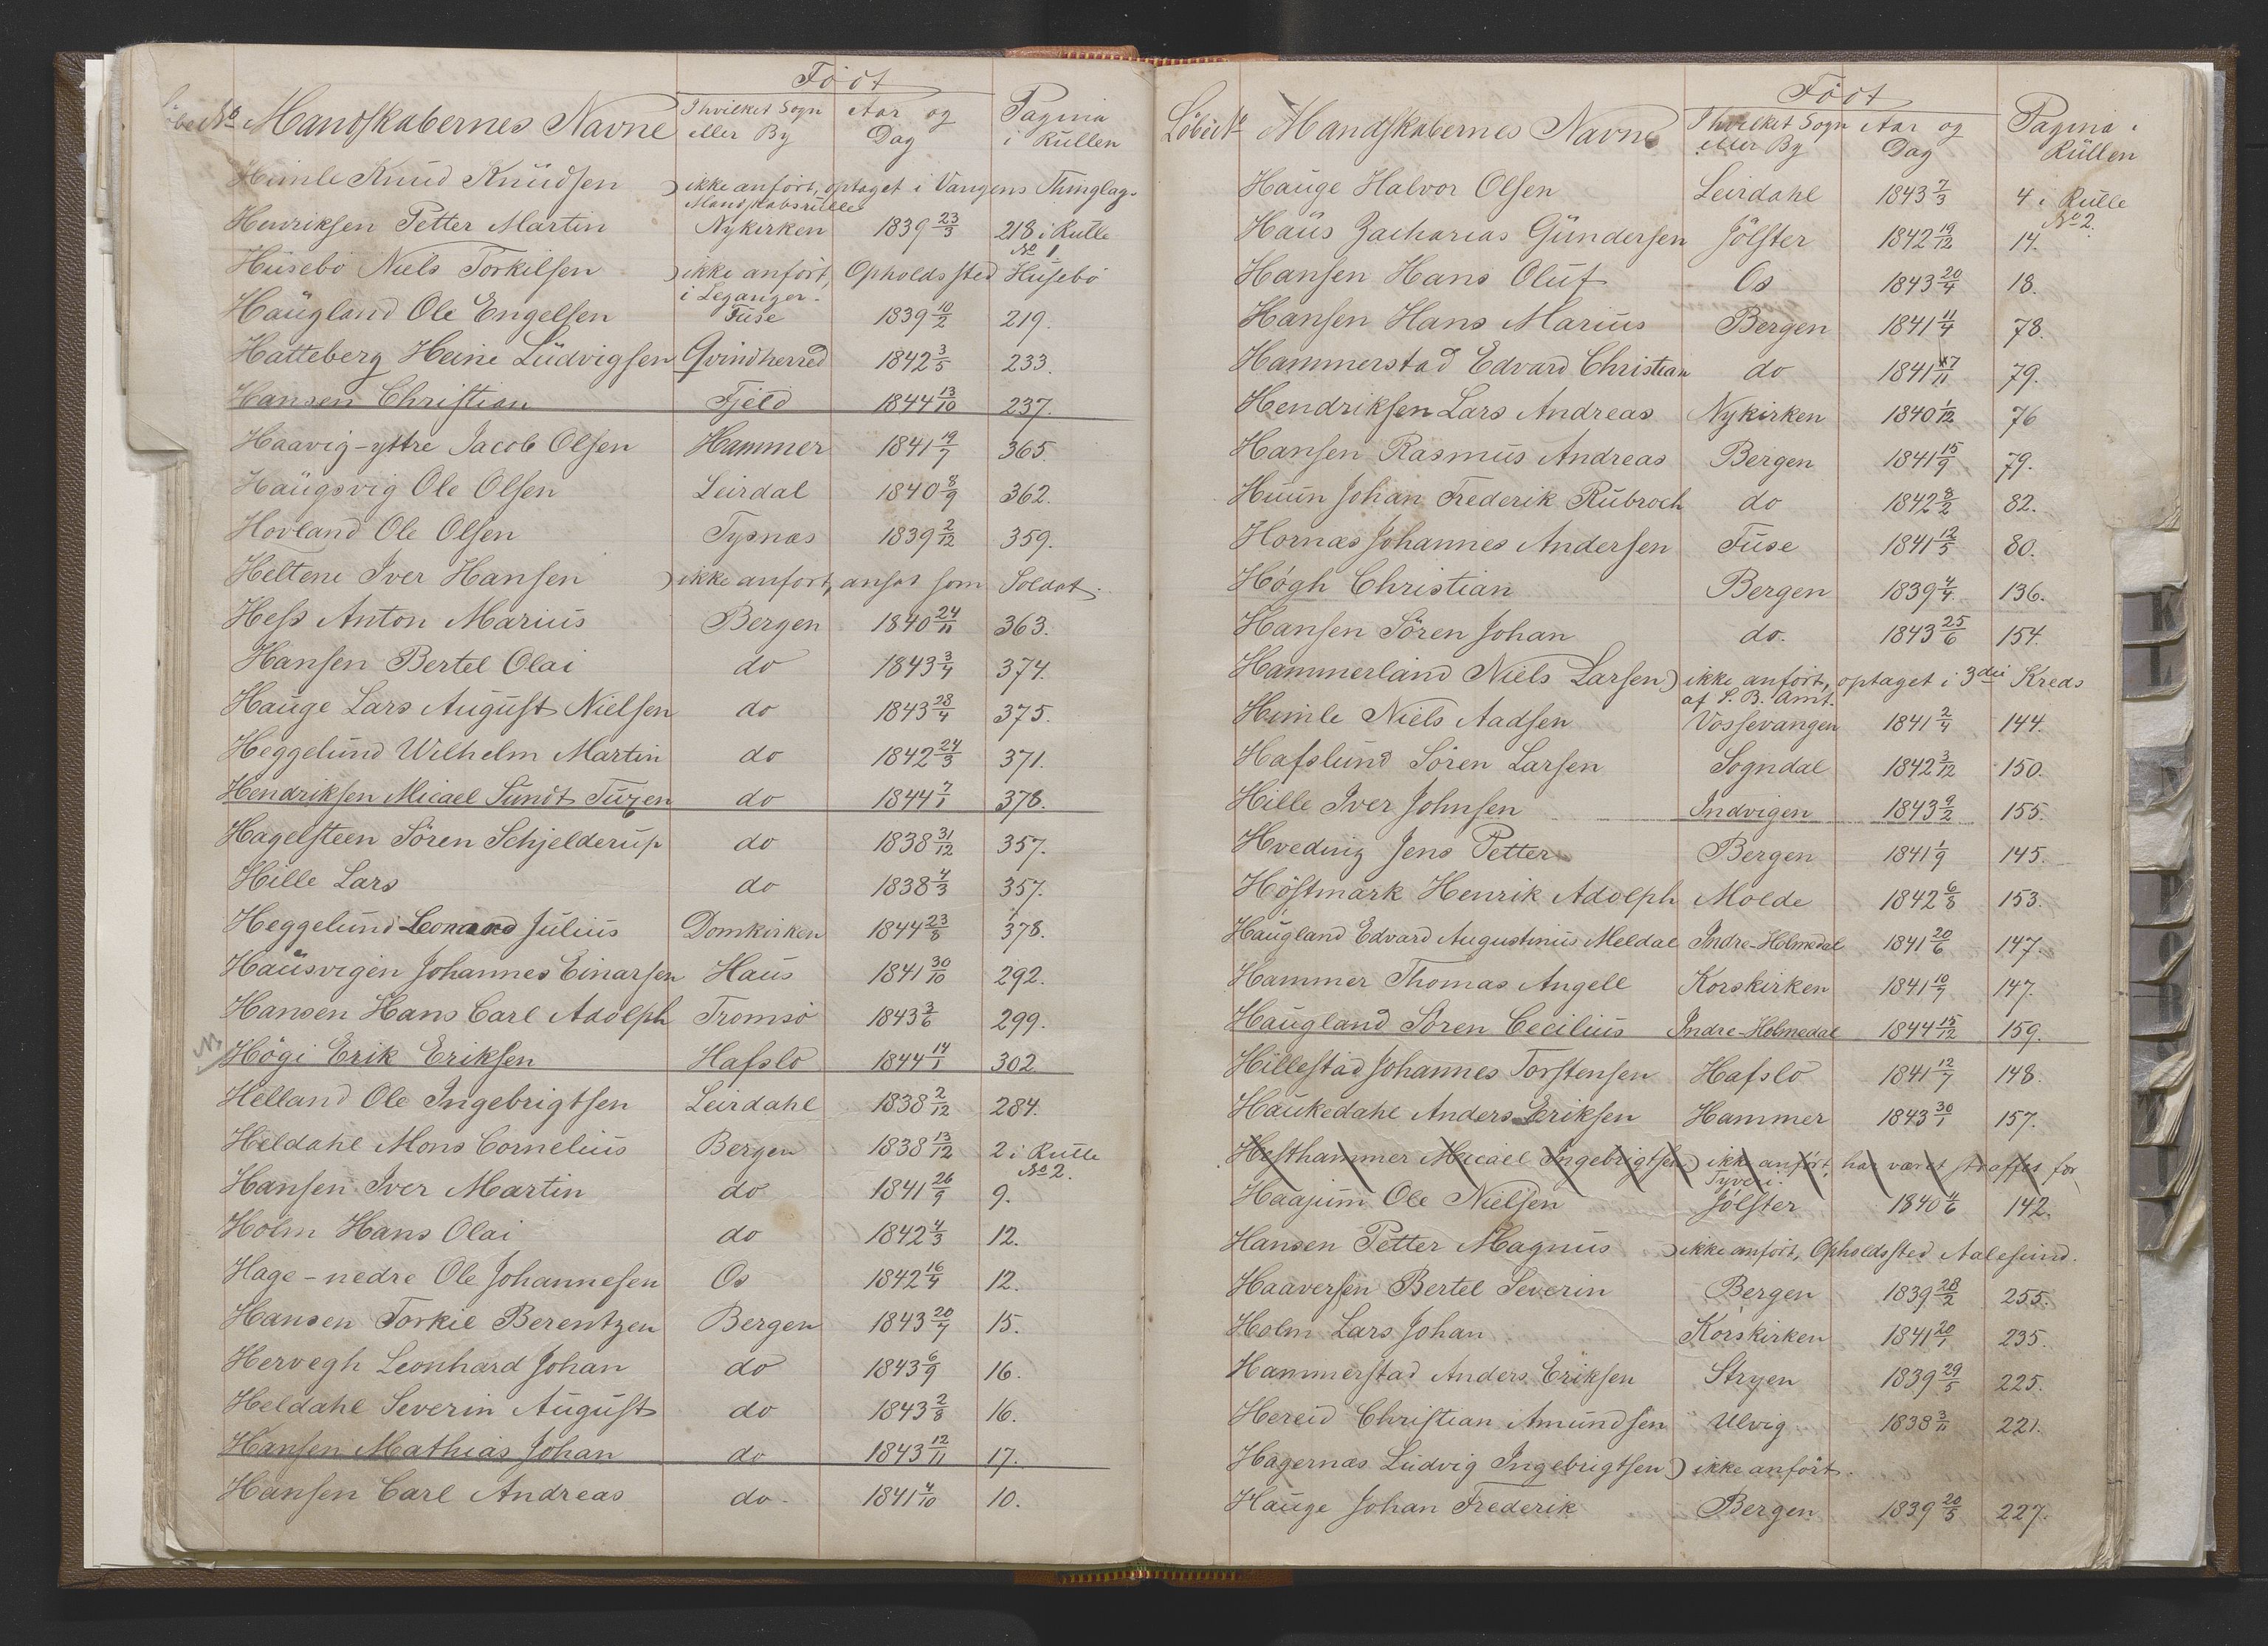 Födt
Löbe No Mandskabernes Navne I hvilket Sogn Aar og Pagina
eller By Dag i Rullen
Himle Knud Knudsen ) ikke anfört, optaget i Vangens Thinglags
Mandskabsrulle
Henriksen Petter Martin Nykirken 1839 23/3 218 i Rulle
No 1
Husebö Niels Torkilsen ) ikke anfört, Opholdssted Husebö
i Leganger.
Haugland Ole Engelsen Fuse 1839 10/2 219.
Hatteberg Heine Ludvigsen Qvindherred 1842 3/5 233.
Hansen Christian Fjeld 1844 13/10 237.
Haavig-yttre Jacob Olsen Hammer 1841 19/7 365.
Haugsvig Ole Olsen Leirdal 1840 8/9 362.
Hovland Ole Olsen Tysnæs 1839 2/12 359.
Heltene Iver Hansen ) ikke anfört, ansat som Soldat.
Hess Anton Marius Bergen 1840 24/11 363.
Hansen Bertel Olai do 1843 3/4 374.
Hauge Lars August Nielsen do 1843 28/4 375.
Heggelund Wilhelm Martin do 1842 24/3 371.
Hendriksen Micael Sundt Tuzen do 1844 7/1 378.
Hagelsteen Sören Schjelderup do 1838 31/12 357.
Hille Lars do 1838 4/3 357.
Heggelund Leonard Julius Domkirken 1844 23/8 378.
Hausvigen Johannes Einarsen Haus 1841 30/10 292.
Hansen Hans Carl Adolph Tromsö 1843 3/6 299.
Högi Erik Eriksen Hafslo 1844 14/1 302.
Helland Ole Ingebrigtsen Leirdahl 1838 2/12 284.
Heldahl Mons Cornelius Bergen 1838 13/12 2 i Rulle
No 2.
Hansen Iver Martin do 1841 26/9 9.
Holm Hans Olai do 1842 4/3 12.
Hage-nedre Ole Johannesen Os 1842 16/4 12.
Hansen Torkil Berentzen Bergen 1843 20/7 15.
Hervegh Leonhard Johan do 1843 6/9 16.
Heldahl Severin August do 1843 2/8 16.
Hansen Mathias Johan do 1843 12/11 17.
Hansen Carl Andreas do 1841 4/10 10.
Födt
Löbe No Mandskabernes Navne I hvilket Sogn Aar og Pagina i
eller By Dag Rullen
Hauge Halvor Olsen Leirdahl 1843 7/3 4 i Rulle
No 2.
Haus Zacharias Gundersen Jölster 1842 19/12 14.
Hansen Hans Oluf Os 1843 20/4 18.
Hansen Hans Marius Bergen 1841 11/4 78.
Hammerstad Edvard Christian do 1841 17/11 79.
Hendriksen Lars Andreas Nykirken 1840 1/12 76
Hansen Rasmus Andreas Bergen 1841 15/9 79.
Huun Johan Frederik Rubroch do 1842 8/2 82.
Hornæs Johannes Andersen Fuse 1841 12/5 80.
Högh Christian Bergen 1839 4/4 136.
Hansen Sören Johan do. 1843 25/6 154.
Hammerland Niels Larsen ) ikke anfört, optaget i 3die Kreds
af S. B. Amt.
Himle Niels Aadsen Vossevangen 1841 2/4 144.
Hafslund Sören Larsen Sogndal 1842 3/12 150.
Hille Iver Johnsen Indvigen 1843 9/2 155.
Hveding Jens Petter Bergen 1841 1/9 145.
Höstmark Henrik Adolph Molde 1842 6/8 153.
Haugland Edvard Augustinus Meldal Indre-Holmedal 1841 20/6 147.
Hammer Thomas Angell Korskirken 1841 10/7 147.
Haugland Sören Cecilius Indre-Holmedal 1844 15/12 159.
Hillestad Johannes Torstensen Hafslo 1841 12/7 148.
Haukedahl Anders Eriksen Hammer 1843 30/1 157.
Hosthammer Micael Ingebrigtsen ) ikke anfört, har været straffet for
Tyveri.
Haajum Ole Nielsen Jölster 1840 4/6 142.
Hansen Petter Magnus ) ikke anfört, Opholdssted Aalesund.
Haaversen Bertel Severin Bergen 1839 28/2 255.
Holm Lars Johan Korskirken 1841 20/1 235.
Hammerstad Anders Eriksen Stryen 1839 29/5 225.
Hereid Christian Amundsen Ulvig 1838 3/11 221.
Hagernæs Ludvig Ingebrigtsen ) ikke anfört.
Hauge Johan Frederik Bergen 1839 20/5 227.
K
L